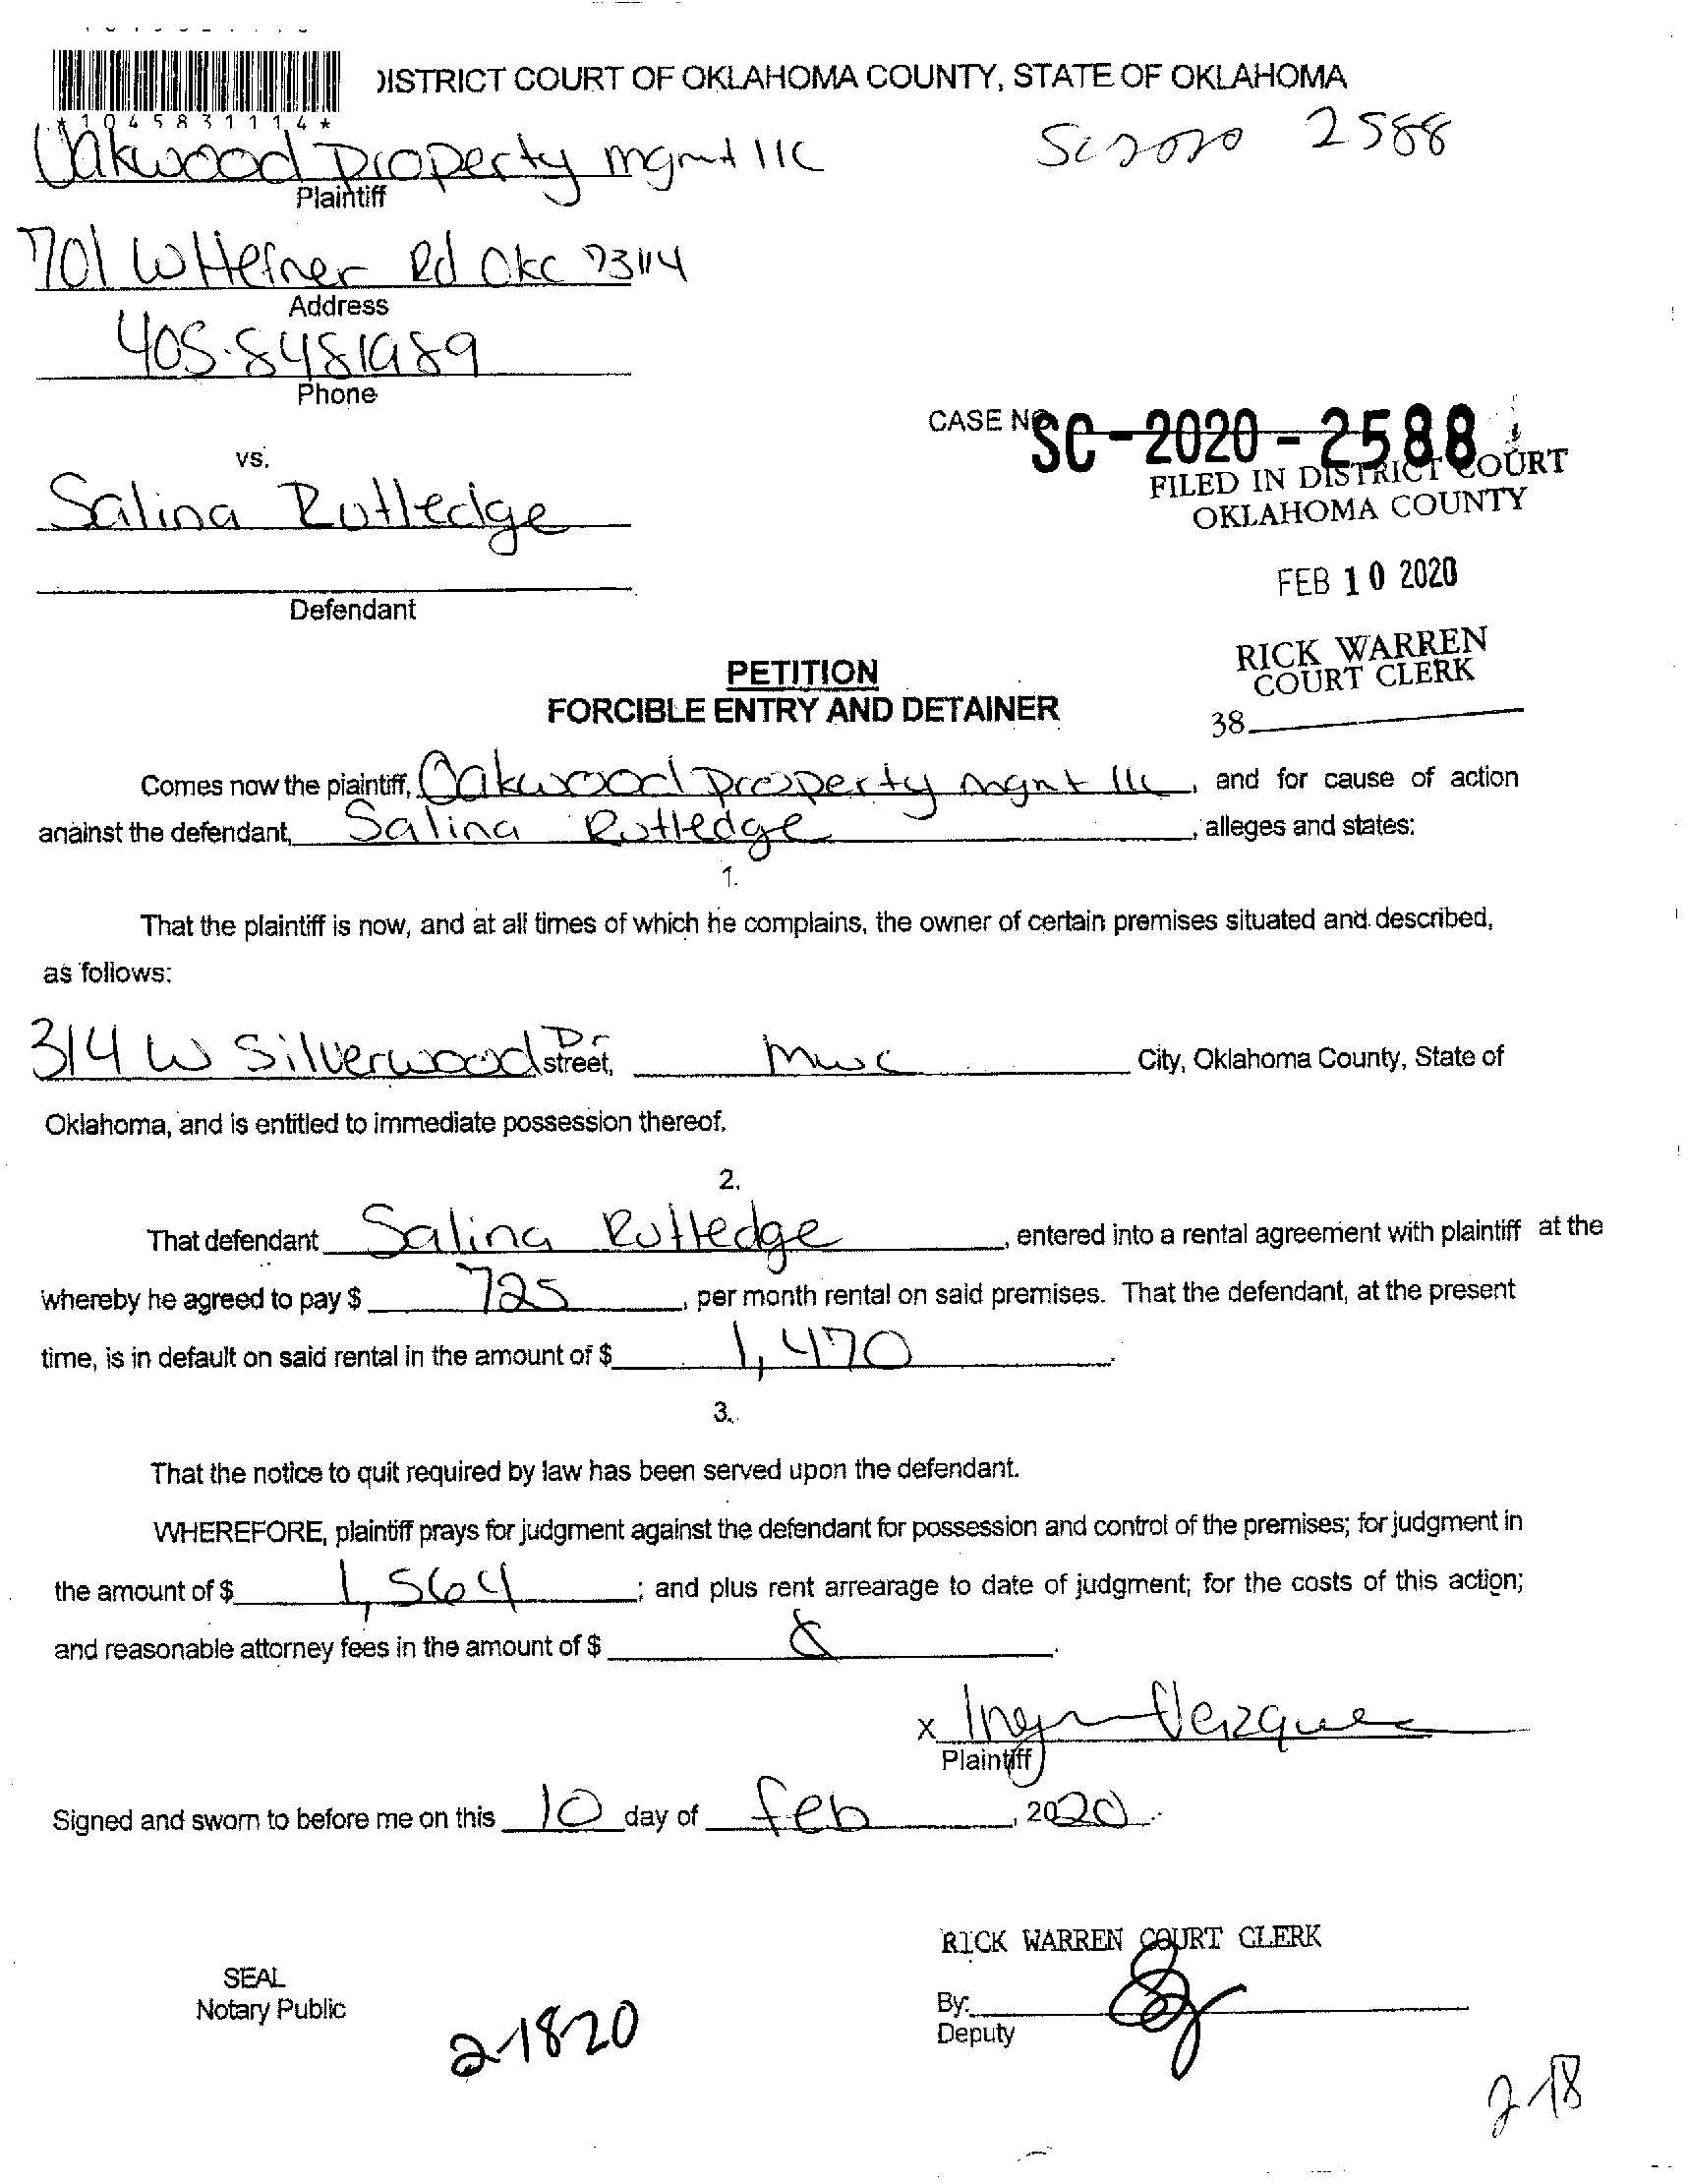 *1045831114*
DISTRICT COURT OF OKLAHOMA COUNTY, STATE OF OKLAHOMA
Oakwood Property mgmt llc
Plaintiff
SC 2020 2588
701 W Hefner Rd Okc 73114
Address
405.8481989
Phone
CASE NO SC-2020-2588
vs.
FILED IN DISTRICT COURT
OKLAHOMA COUNTY
Salina Rutledge
FEB 10 2020
Defendant
RICK WARREN
COURT CLERK
38
PETITION
FORCIBLE ENTRY AND DETAINER
Comes now the plaintiff, Oakwood Property mgnt llc, and for cause of action
against the defendant, Salina Rutledge, alleges and states:
1.
That the plaintiff is now, and at all times of which he complains, the owner of certain premises situated and described,
as follows:
314 W Silverwood Dr street, MWC City, Oklahoma County, State of
Oklahoma, and is entitled to immediate possession thereof.
2.
That defendant Salina Rutledge, entered into a rental agreement with plaintiff at the
whereby he agreed to pay $ 725, per month rental on said premises. That the defendant, at the present
time, is in default on said rental in the amount of $ 1,470.
3.
That the notice to quit required by law has been served upon the defendant.
WHEREFORE, plaintiff prays for judgment against the defendant for possession and control of the premises; for judgment in
the amount of $ 1,564; and plus rent arrearage to date of judgment; for the costs of this action;
and reasonable attorney fees in the amount of $
x
Plaintiff
Signed and sworn to before me on this 10 day of feb, 2020.
RICK WARREN COURT CLERK
SEAL
Notary Public
By:
Deputy
2-18-20
2-18